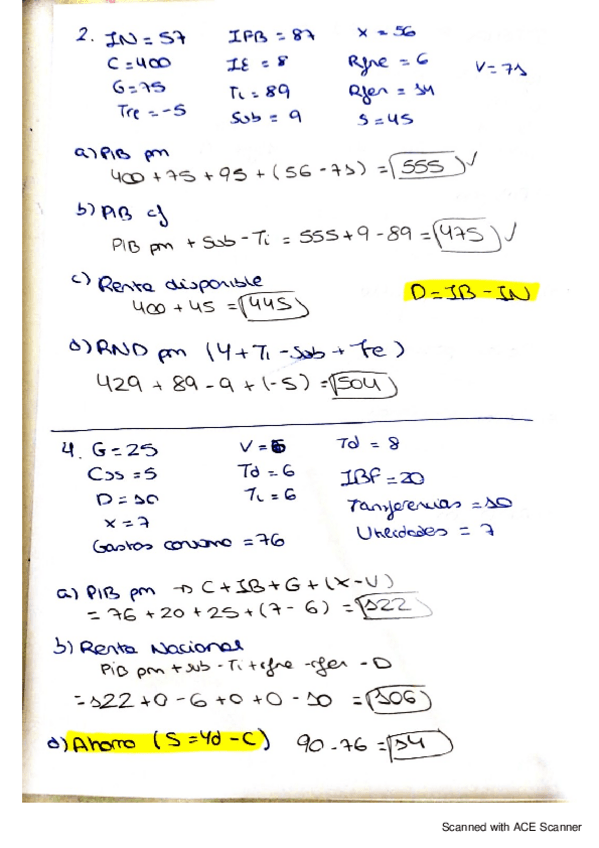 2. IN = 57 IFB = 87 X = 56
C = 400 IE = 8 Rfne = 6 V = 71
G = 75 Ti = 89 Rfen = 14
Tre = -5 Sub = 9 S = 45
a) PIB pm
400 + 75 + 95 + (56 - 71) = 555 ✓
b) PIB cf
PIB pm + Sub - Ti = 555 + 9 - 89 = 475 ✓
c) Renta disponible
400 + 45 = 445
D = IB - IN
d) RND pm (Y + Ti - Sub + Tre)
429 + 89 - 9 + (-5) = 504
4. G = 25 V = 6 Td = 8
Css = 5 Td = 6 IBF = 20
D = 10 Ti = 6 Transferencias = 10
X = 7 Utilidades = 7
Gastos consumo = 76
a) PIB pm → C + IB + G + (X - V)
= 76 + 20 + 25 + (7 - 6) = 122
b) Renta Nacional
PIB pm + sub - Ti + rfne - rfen - D
= 122 + 0 - 6 + 0 + 0 - 10 = 106
d) Ahorro (S = Yd - C) 90 - 76 = 14
Scanned with ACE Scanner